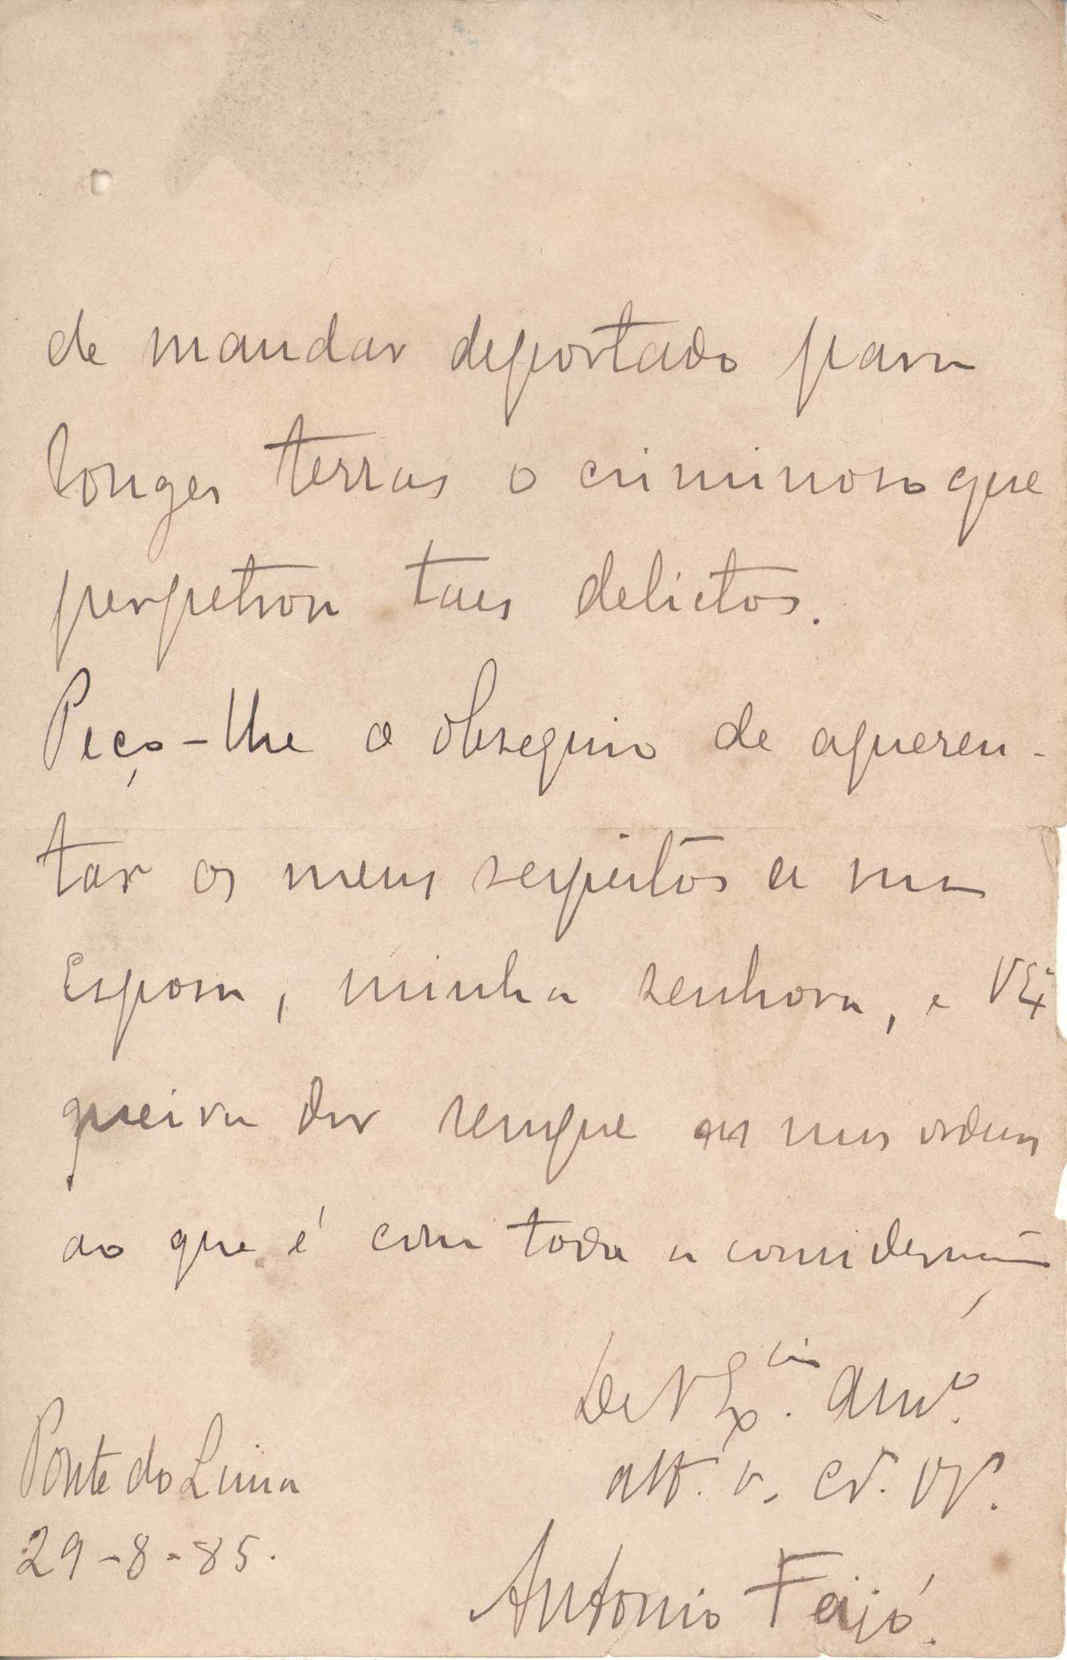 de mandar deportado para
longes terras o criminoso que
perpetrou taes delictos.
Peço-lhe o obsequio de apresen-
tar os meus respeitos a sua
Esposa, minha senhora, e V Ex
queira dar sempre as suas ordens
ao que é com toda a consideração
De V Ex.cia am.o
att. v. cr. obg.o
Ponte do Lima
29-8-85.
Antonio Feijó.